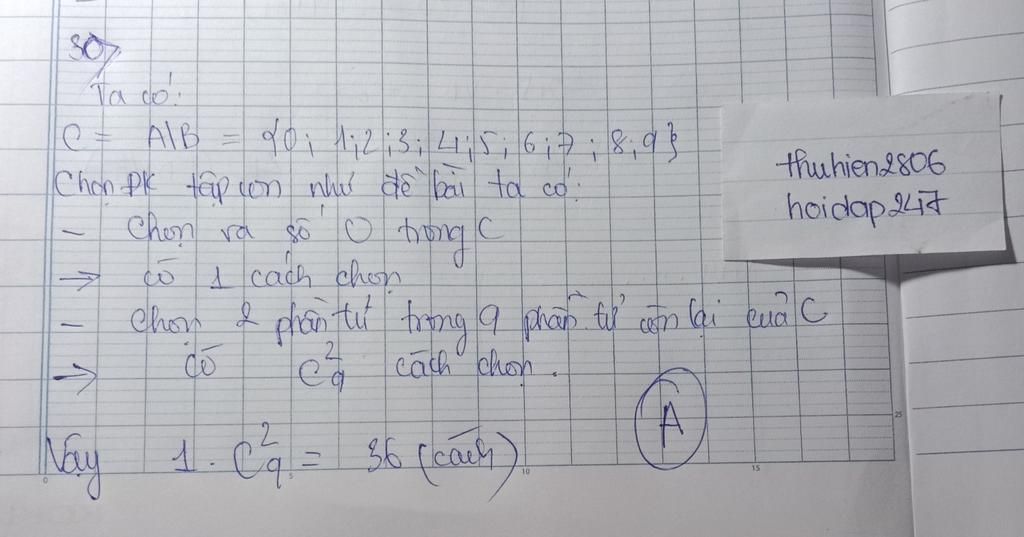 30>
Ta có:
C = A\B = {0; 1;2;3; 4;5; 6;7; 8;9}
Chọn ĐK tập con như đề bài ta có:
- Chọn ra số 0 trong C
→ có 1 cách chọn
- Chọn 2 phần tử trong 9 phần tử còn lại của C
→ có C²₉ cách chọn.
A
Vậy 1. C²₉ = 36 (cách)
thuhien2806
hoidap247
0 5 10 15
25